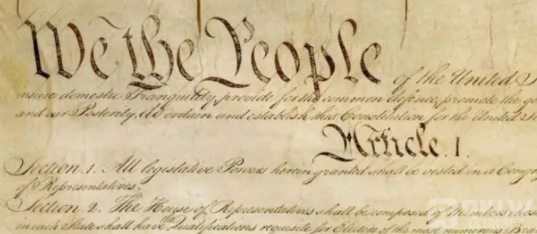 We the People of the United S
insure domestic Tranquility, provide for the common defence, promote the ge
and our Posterity, do ordain and establish this Constitution for the United S
Article. I.
Section. 1. All legislative Powers herein granted shall be vested in a Congr
of Representatives.
Section. 2. The House of Representatives shall be composed of Members chose
in each State shall have the Qualifications requisite for Electors of the most numerous Bran